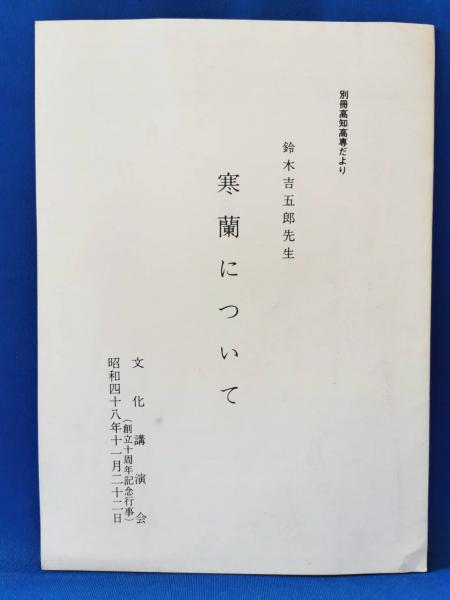 別冊高知高専だより
鈴木吉五郎先生
寒蘭について
文化講演会
(創立十周年記念行事)
昭和四十八年十一月二十二日